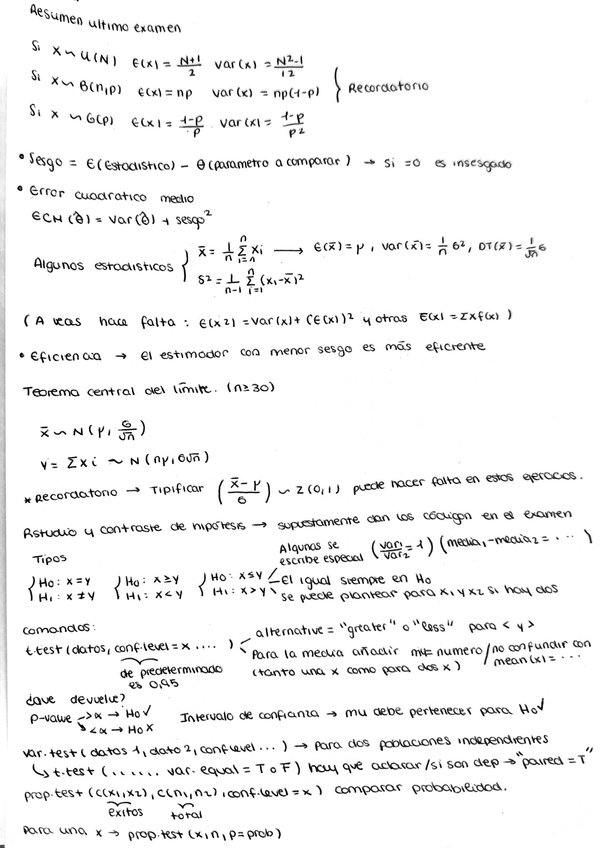 Resumen ultimo examen
Si X ~ U(N) E(X) = N+1/2 Var(X) = N²-1/12
Si X ~ B(n,p) E(X) = np Var(X) = np(1-p) } Recordatorio
Si X ~ G(p) E(X) = 1-p/p Var(X) = 1-p/p2
• Sesgo = E(Estadistico) - θ(parametro a comparar) → si =0 es insesgado
• Error cuadratico medio
ECM(θ̂) = Var(θ̂) + sesgo²
Algunos estadisticos { x̄ = 1/n Σ(i=n, n) Xi → E(x̄) = μ, Var(x̄) = 1/n σ², DT(x̄) = 1/√n σ
S² = 1/n-1 Σ(i=1, n) (xi-x̄)²
(A veces hace falta: E(x2) = Var(x) + (E(x))² y otras E(x) = Σxf(x))
• Eficiencia → el estimador con menor sesgo es más eficiente
Teorema central del límite. (n≥30)
x̄ ~ N(μ, σ/√n)
Y = ΣXi ~ N(nμ, σ√n)
* Recordatorio → Tipificar (x̄-μ/σ) ~ Z(0,1) puede hacer falta en estos ejercicios.
Rstudio y contraste de hipótesis → supuestamente dan los códigos en el examen
Tipos
Algunas se escribe especial (var1/var2 = 1) (media1-media2 = ...)
{ H0: X=Y H1: X≠Y { H0: X≥Y H1: X<Y { H0: X≤Y H1: X>Y
El igual siempre en H0
se puede plantear para x, y x2 si hay dos
comandos:
t.test(datos, conf.level=x ....)
alternative = "greater" o "less" para < y >
de predeterminado es 0,95
Para la media añadir mu= numero / no confundir con mean(x)=...
(tanto una x como para dos x)
Que devuelve?
p-value >α → H0 ✓
<α → H0 X
Intervalo de confianza → mu debe pertenecer para H0 ✓
var.test(datos 1, dato 2, conf.level ...) → para dos poblaciones independientes
↳ t.test(......, var.equal = T o F) hay que aclarar / si son dep → "paired = T"
prop.test(c(x1,x2), c(n1,n2), conf.level=x) comparar probabilidad.
exitos total
Para una x → prop.test(x,n,p=prob)